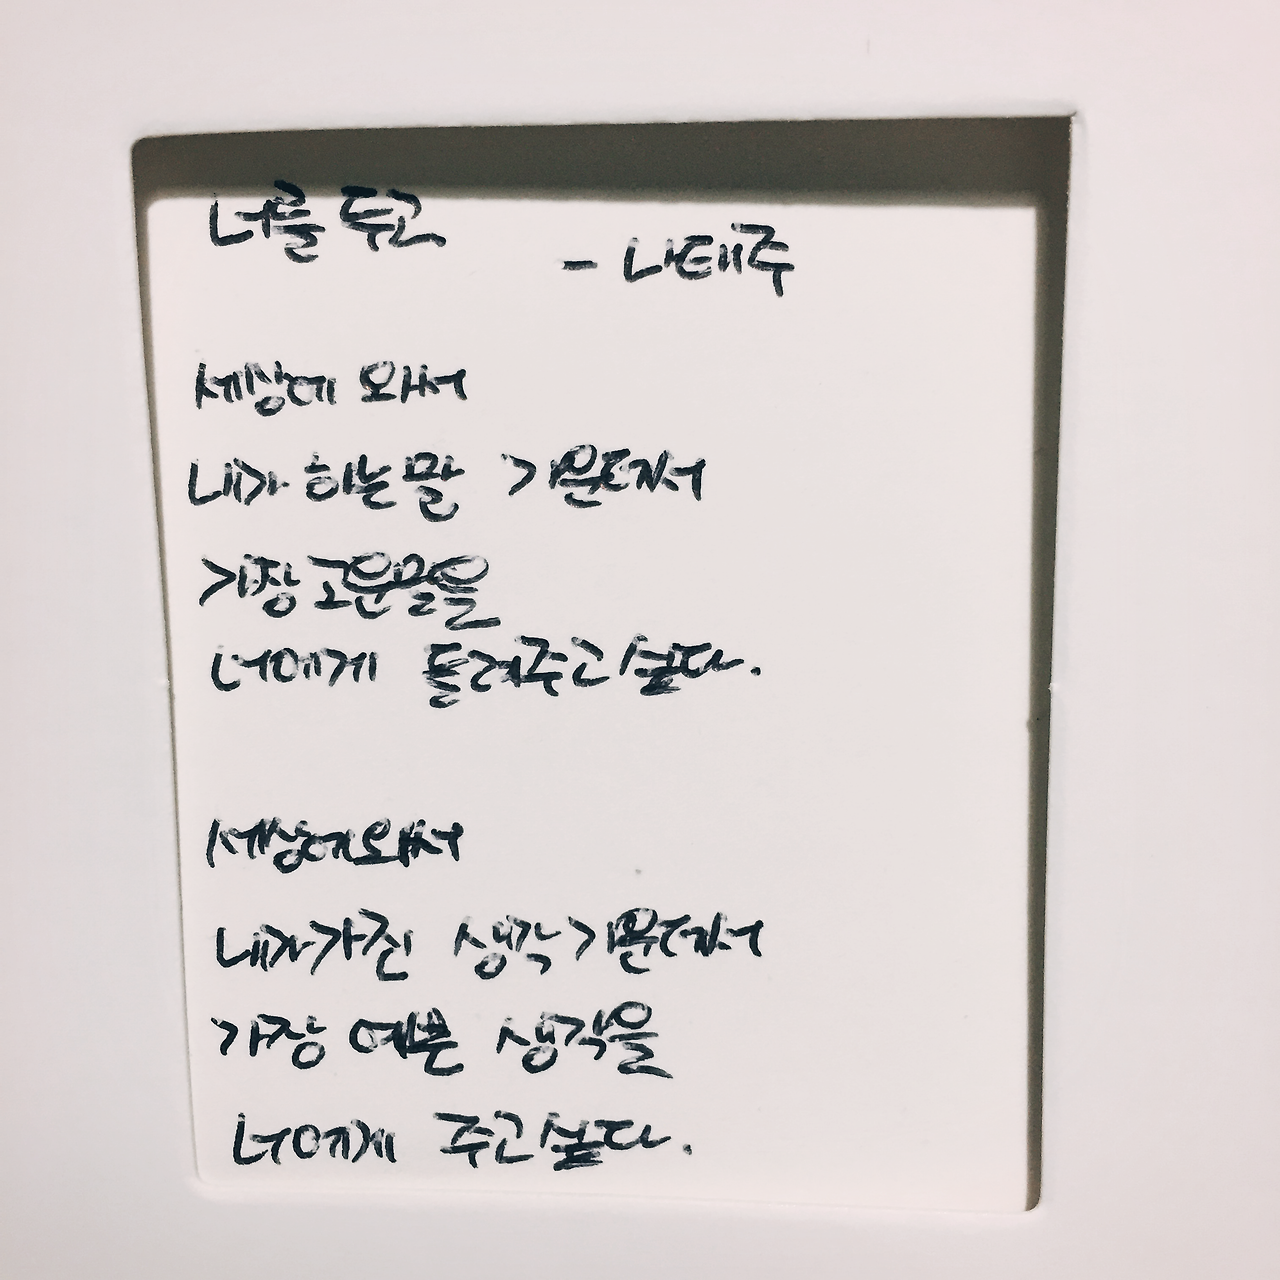 너를 두고
- 나태주
세상에 와서
내가 하는 말 가운데서
가장 고운 말을
너에게 들려주고 싶다.
세상에 와서
내가 가진 생각 가운데서
가장 예쁜 생각을
너에게 주고 싶다.